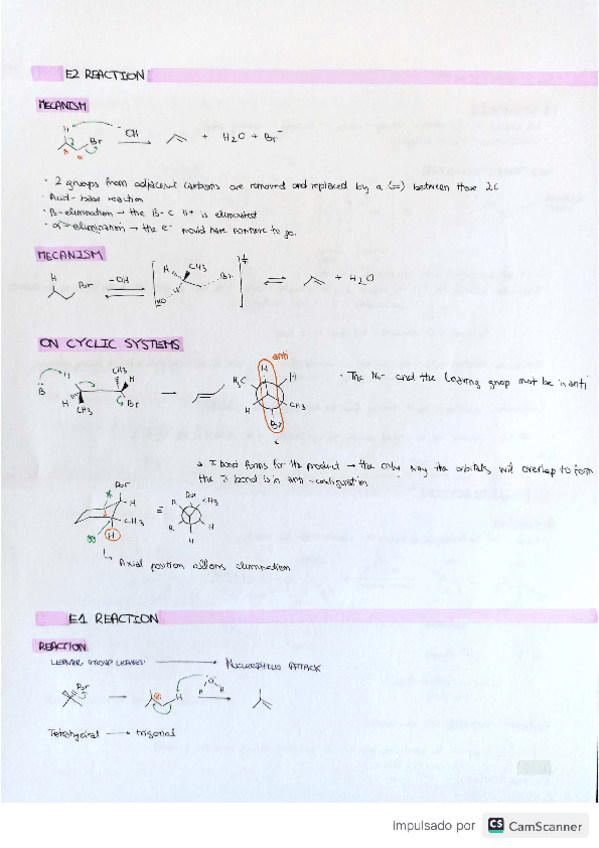 E2 REACTION
MECANISM
H Br -OH → + H2O + Br-
β α
· 2 groups from adjacent carbons are removed and replaced by a (=) between those 2C
· Acid-base reaction
· β-elimination → the β-C H+ is eliminated
· α-elimination → the e- would have nowhere to go.
MECANISM
H Br -OH ⇌ [ H CH3 Br HO ]‡ ⇌ + H2O
ON CYCLIC SYSTEMS
anti
B H CH3 H Br H CH3 → H3C H H H CH3 Br
· The and the Leaving group must be in anti
π bond forms for the product → the only way the orbitals will overlap to form
the π bond is in anti-configuration
Br H CH3 H = Br CH3 R R H H
Axial position allows elimination
E1 REACTION
REACTION
LEAVING GROUP LEAVES → NUCLEOPHILE ATTACK
Br → ⊕ H R O R →
Tetrahydral → trigonal
Impulsado por CS CamScanner